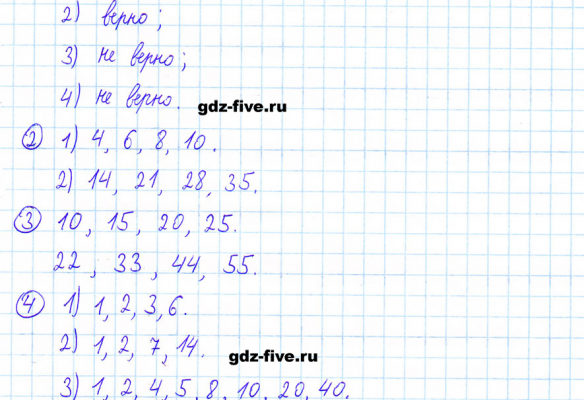 2) верно;
3) не верно;
4) не верно.
gdz-five.ru
2 1) 4, 6, 8, 10.
2) 14, 21, 28, 35.
3 10, 15, 20, 25.
22, 33, 44, 55.
4 1) 1, 2, 3, 6.
2) 1, 2, 7, 14.
gdz-five.ru
3) 1, 2, 4, 5, 8, 10, 20, 40.